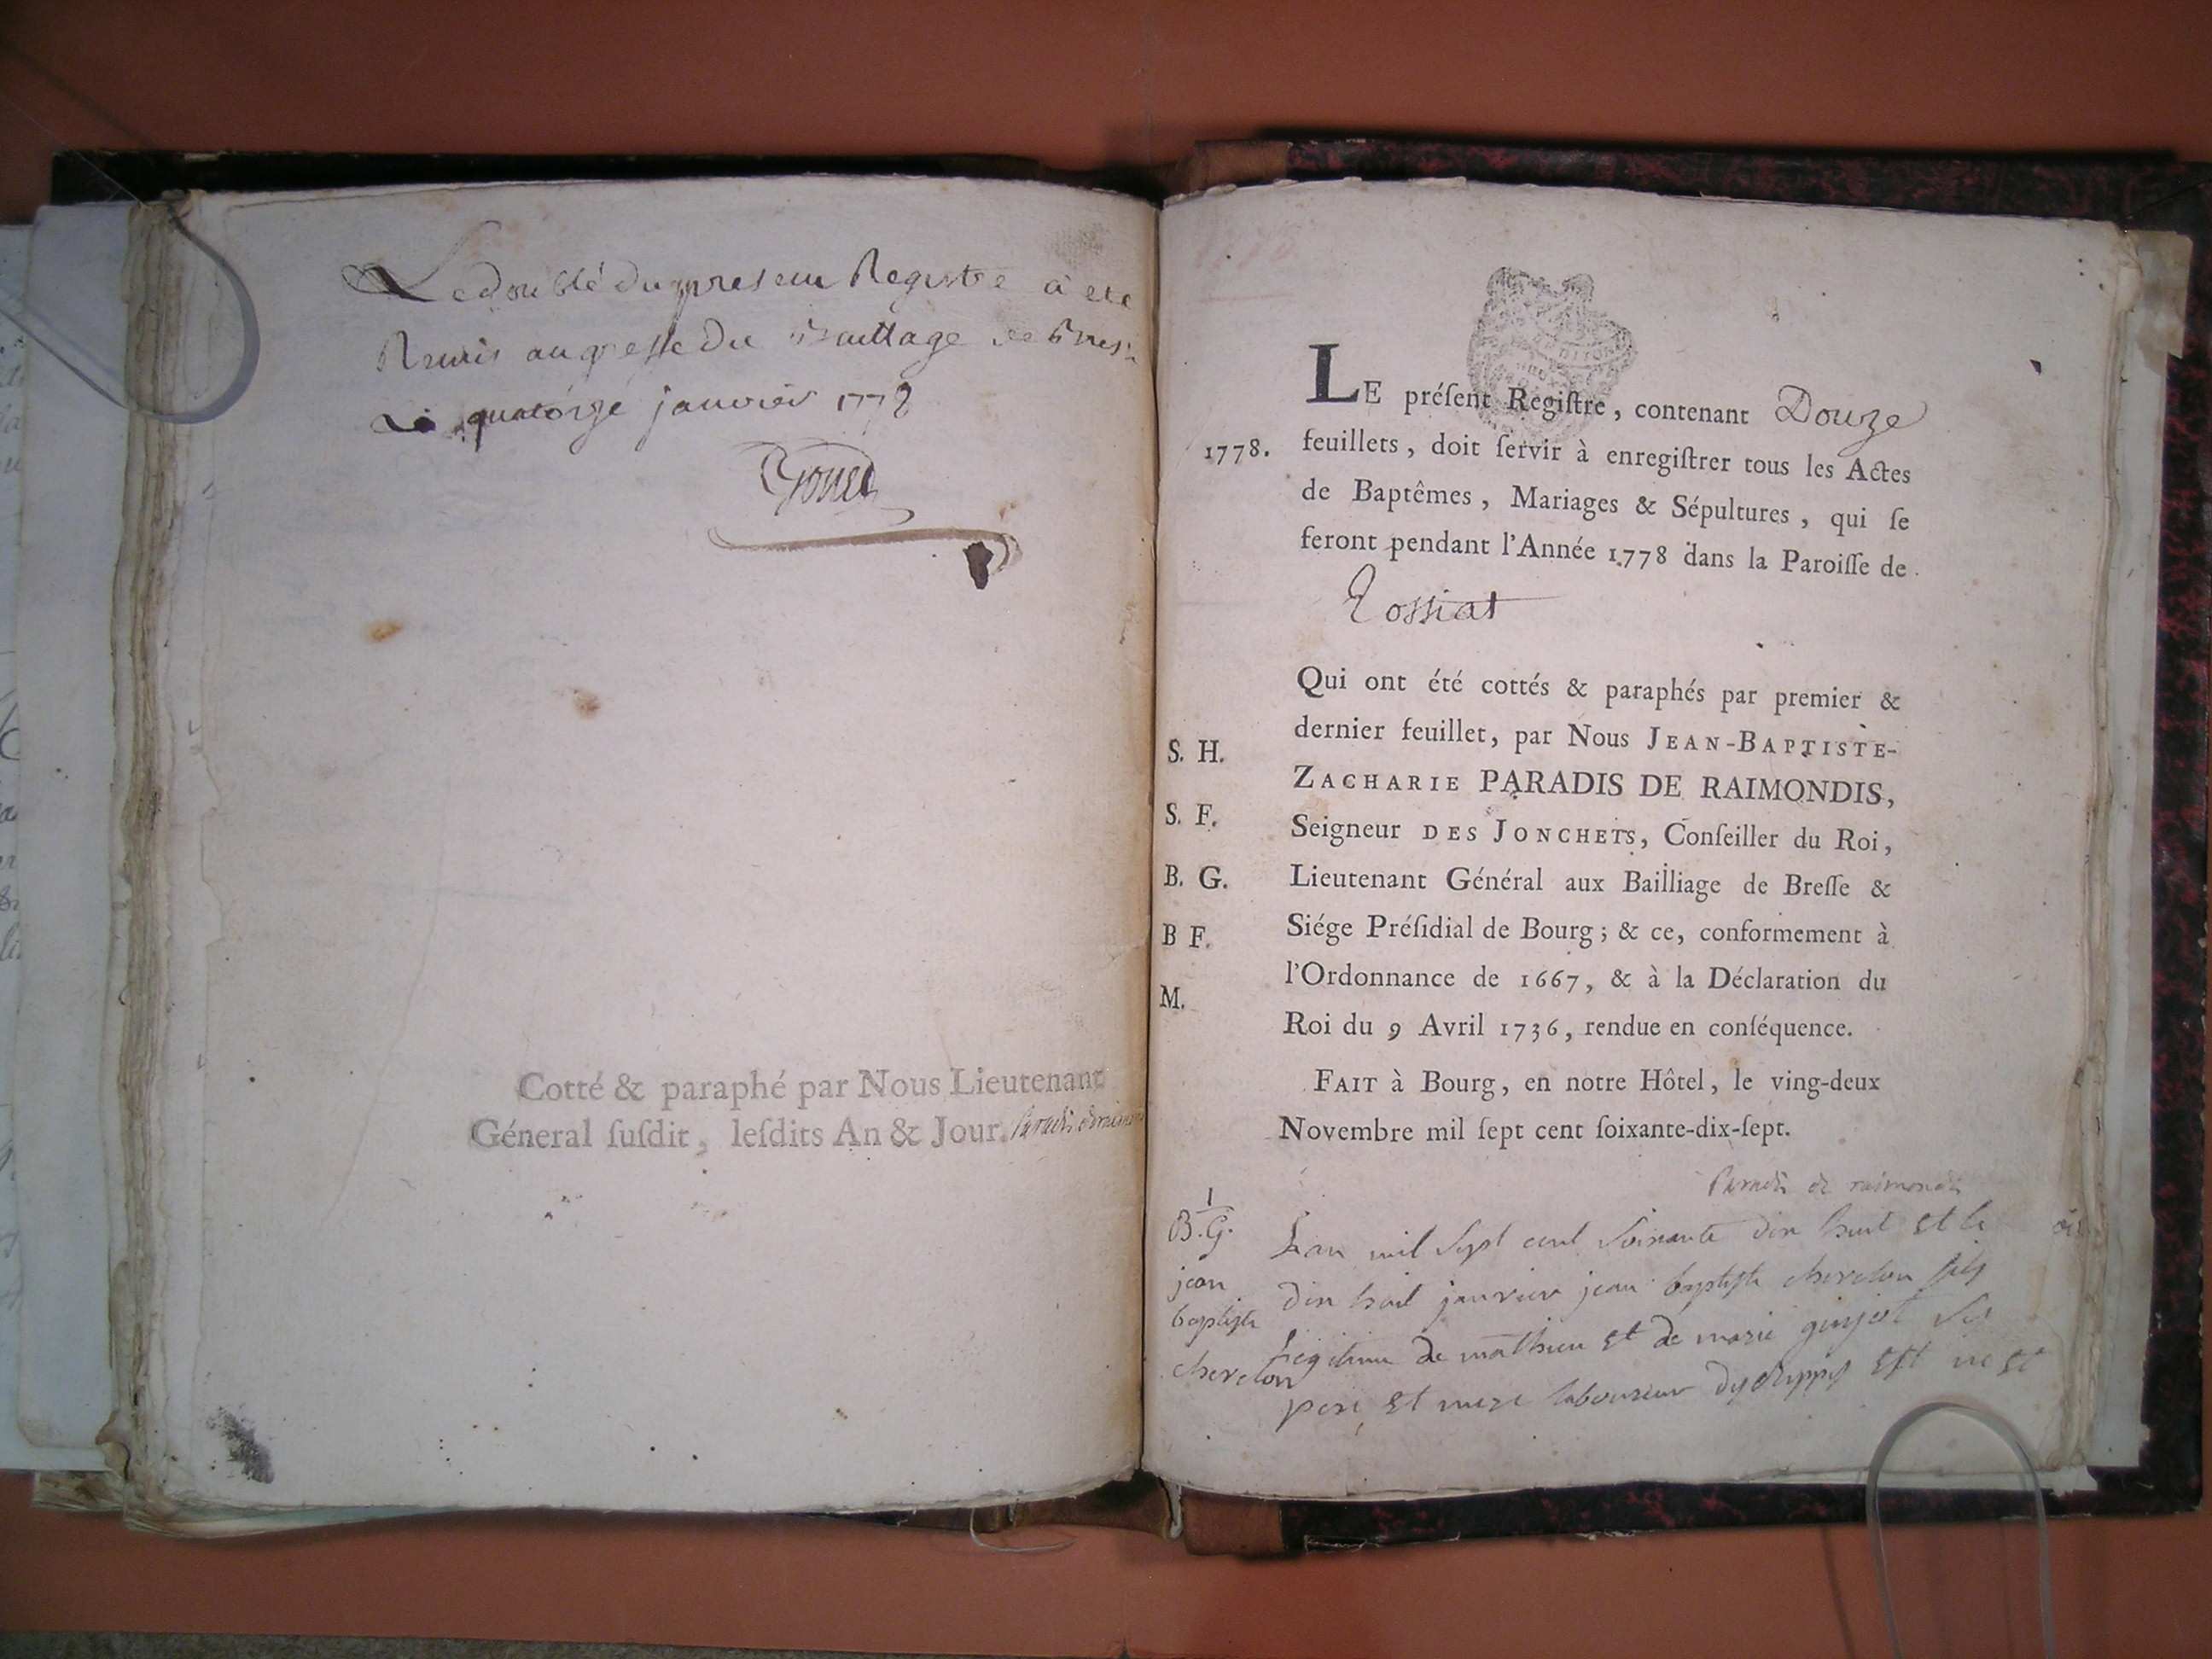 Le double du present Registre a ete
Remis au greffe du Bailliage de Bres
Le quatorze janvier 1778
Cotté & paraphé par Nous Lieutenant
Géneral ſuſdit, leſdits An & Jour. Paradis de raimondis
LE préſent Regiſtre, contenant Douze
1778. feuillets, doit ſervir à enregiſtrer tous les Actes
de Baptêmes, Mariages & Sépultures, qui ſe
feront pendant l'Année 1778 dans la Paroiſſe de
Rossiat
Qui ont été cottés & paraphés par premier &
dernier feuillet, par Nous JEAN-BAPTISTE-
S. H.
ZACHARIE PARADIS DE RAIMONDIS,
S. F.
Seigneur DES JONCHETS, Conſeiller du Roi,
B. G.
Lieutenant Général aux Bailliage de Breſſe &
B F.
Siége Préſidial de Bourg; & ce, conformement à
l'Ordonnance de 1667, & à la Déclaration du
M.
Roi du 9 Avril 1736, rendue en conſéquence.
FAIT à Bourg, en notre Hôtel, le ving-deux
Novembre mil ſept cent ſoixante-dix-ſept.
Paradis de raimondis
1
B.G.
jean
baptiste
cherclon
Lan mil sept cent soixante dix huit et le
dix huit janvier jean baptiste cherclon fils
legitime de mathieu et de marie guyot ses
pere et mere laboureur est ne et